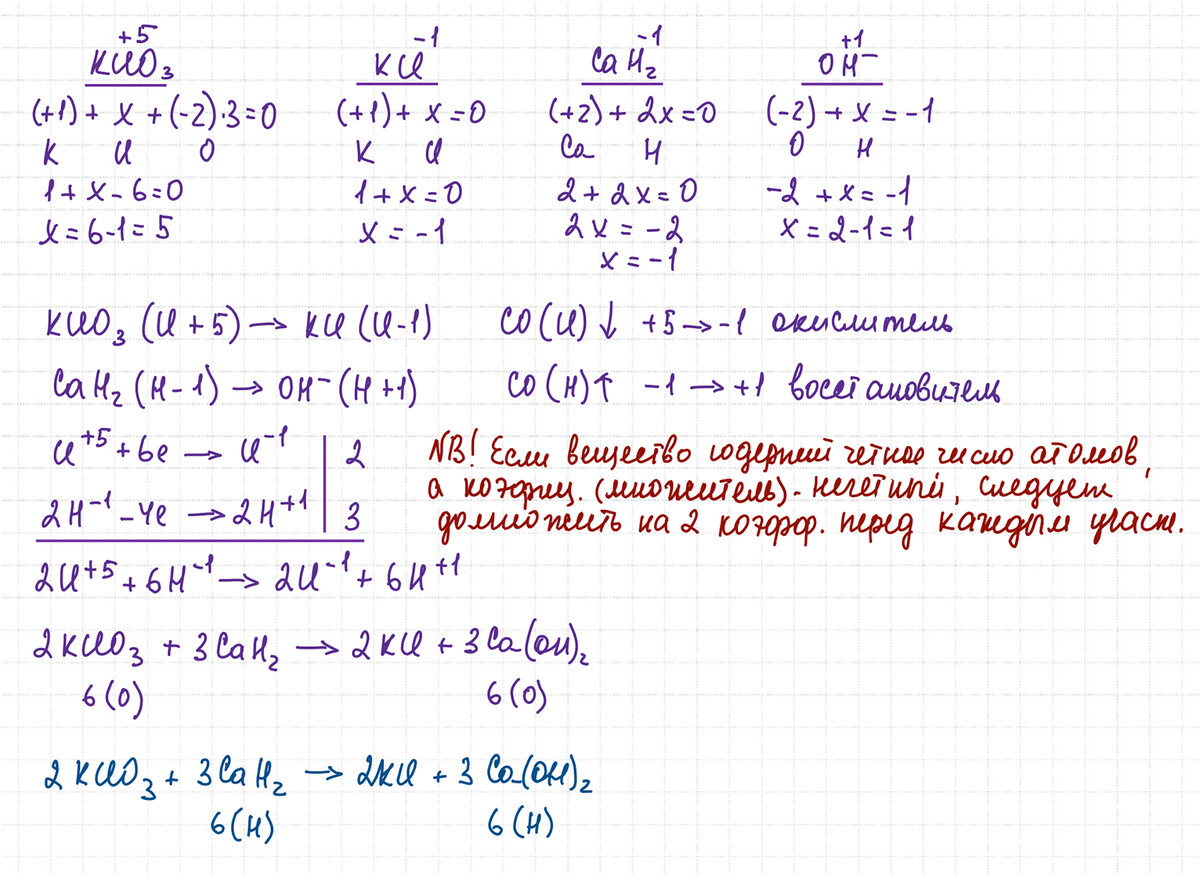 KClO₃⁺⁵ KCl⁻¹ CaH₂⁻¹ OH⁻⁺¹
(+1) + x + (-2)·3=0 (+1) + x = 0 (+2) + 2x = 0 (-2) + x = -1
K Cl O K Cl Ca H O H
1 + x - 6 = 0 1 + x = 0 2 + 2x = 0 -2 + x = -1
x = 6-1 = 5 x = -1 2x = -2 x = 2-1 = 1
x = -1
KClO₃ (Cl + 5) → KCl (Cl-1) СО(Cl)↓ +5 → -1 окислитель
CaH₂ (H-1) → OH⁻ (H+1) СО(H)↑ -1 → +1 восстановитель
Cl⁺⁵ + 6e → Cl⁻¹ | 2
2H⁻¹ - 4e → 2H⁺¹ | 3
NB! Если вещество содержит четное число атомов,
а коэффиц. (множитель) - нечетный, следует
домножить на 2 коэфф. перед каждым участ.
2Cl⁺⁵ + 6H⁻¹ → 2Cl⁻¹ + 6H⁺¹
2KClO₃ + 3CaH₂ → 2KCl + 3Ca(OH)₂
6(O) 6(O)
2KClO₃ + 3CaH₂ → 2KCl + 3Ca(OH)₂
6(H) 6(H)